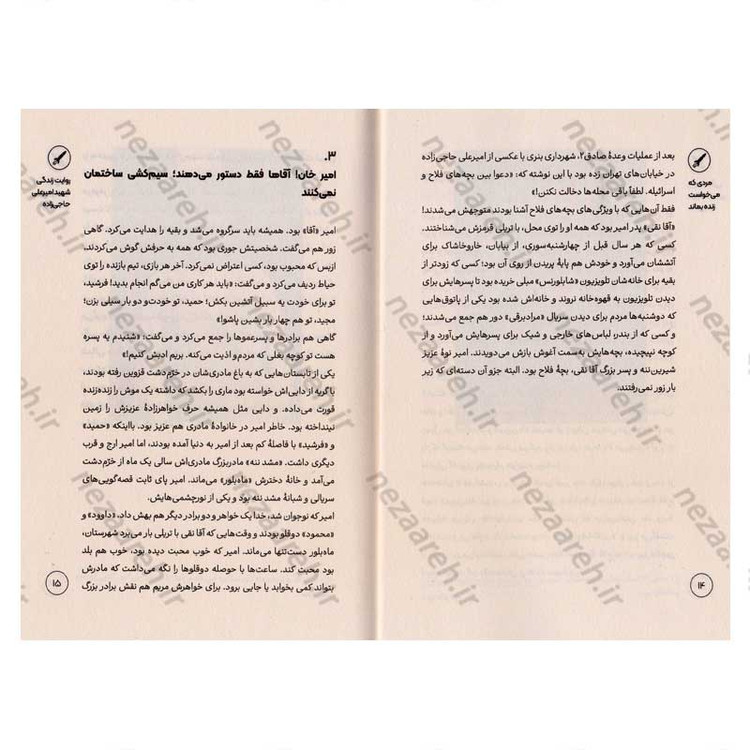 مردی که
می‌خواست
زنده بماند
بعد از عملیات وعدهٔ صادق۲، شهرداری بنری با عکسی از امیرعلی حاجی‌زاده
در خیابان‌های تهران زده بود با این نوشته که: «دعوا بین بچه‌های فلاح و
اسرائیله. لطفاً باقی محله‌ها دخالت نکنن!»
فقط آن‌هایی که با ویژگی‌های بچه‌های فلاح آشنا بودند متوجهش می‌شدند!
«آقا نقی» پدر امیر بود که همه او را توی محل، با تریلی قرمزش می‌شناختند.
کسی که هر سال قبل از چهارشنبه‌سوری، از بیابان، خاروخاشاک برای
آتششان می‌آورد و خودش هم پایهٔ پریدن از روی آن بود؛ کسی که زودتر از
بقیه برای خانه‌شان تلویزیون «شاب‌لورنس» مبلی خریده بود تا پسرهایش برای
دیدن تلویزیون به قهوه‌خانه نروند و خانه‌اش شده بود یکی از پاتوق‌هایی
که دوشنبه‌ها مردم برای دیدن سریال «مرادبرقی» دور هم جمع می‌شدند؛
و کسی که از بندر، لباس‌های خارجی و شیک برای پسرهایش می‌آورد و از
کوچه نپیچیده، بچه‌هایش به‌سمت آغوش بازش می‌دویدند. امیر نوهٔ عزیز
شیرین‌ننه و پسر بزرگ آقا نقی، بچهٔ فلاح بود. البته جزو آن دسته‌ای که زیر
بار زور نمی‌رفتند.
۱۴
روایت زندگی
شهید امیرعلی
حاجی‌زاده
۳.
امیر خان! آقاها فقط دستور می‌دهند؛ سیم‌کشی ساختمان
نمی‌کنند
امیر «آقا» بود. همیشه باید سرگروه می‌شد و بقیه را هدایت می‌کرد. گاهی
زور هم می‌گفت. شخصیتش جوری بود که همه به حرفش گوش می‌کردند.
ازبس که محبوب بود، کسی اعتراض نمی‌کرد. آخر هر بازی، تیم بازنده را توی
حیاط ردیف می‌کرد و می‌گفت: «باید هر کاری من می‌گم انجام بدید! فرشید،
تو برای خودت یه سبیل آتشین بکش؛ حمید، تو خودت و دو بار سیلی بزن؛
مجید، تو هم چهار بار بشین پاشو!»
گاهی هم برادرها و پسرعموها را جمع می‌کرد و می‌گفت: «شنیدم یه پسره
هست تو کوچه بغلی که مردم و اذیت می‌کنه. بریم ادبش کنیم!»
یکی از تابستان‌هایی که به باغ مادری‌شان در خرّم‌دشت قزوین رفته بودند،
با گریه از دایی‌اش خواسته بود ماری را بکشد که داشته یک موش را زنده‌زنده
قورت می‌داده. و دایی مثل همیشه حرف خواهرزادهٔ عزیزش را زمین
نینداخته بود. خاطر امیر در خانوادهٔ مادری هم عزیز بود. بااینکه «حمید»
و «فرشید» با فاصلهٔ کم بعد از امیر به دنیا آمده بودند، اما امیر ارج و قرب
دیگری داشت. «مشد ننه» مادربزرگ مادری‌اش سالی یک ماه از خرّم‌دشت
می‌آمد و خانهٔ دخترش «ماه‌بلور» می‌ماند. امیر پای ثابت قصه‌گویی‌های
سریالی و شبانهٔ مشد ننه بود و یکی از نورچشمی‌هایش.
امیر که نوجوان شد، خدا یک خواهر و دو برادر دیگر هم بهش داد. «داوود» و
«محمود» دوقلو بودند و وقت‌هایی که آقا نقی با تریلی بار می‌برد شهرستان،
ماه‌بلور دست‌تنها می‌ماند. امیر که خوب محبت دیده بود، خوب هم بلد
بود محبت کند. ساعت‌ها با حوصله دوقلوها را نگه می‌داشت که مادرش
بتواند کمی بخوابد یا جایی برود. برای خواهرش مریم هم نقش برادر بزرگ
۱۵
nezaareh.ir
nezaareh.ir
nezaareh.ir
nezaareh.ir
nezaareh.ir
nezaareh.ir
nezaareh.ir
nezaareh.ir
nezaareh.ir